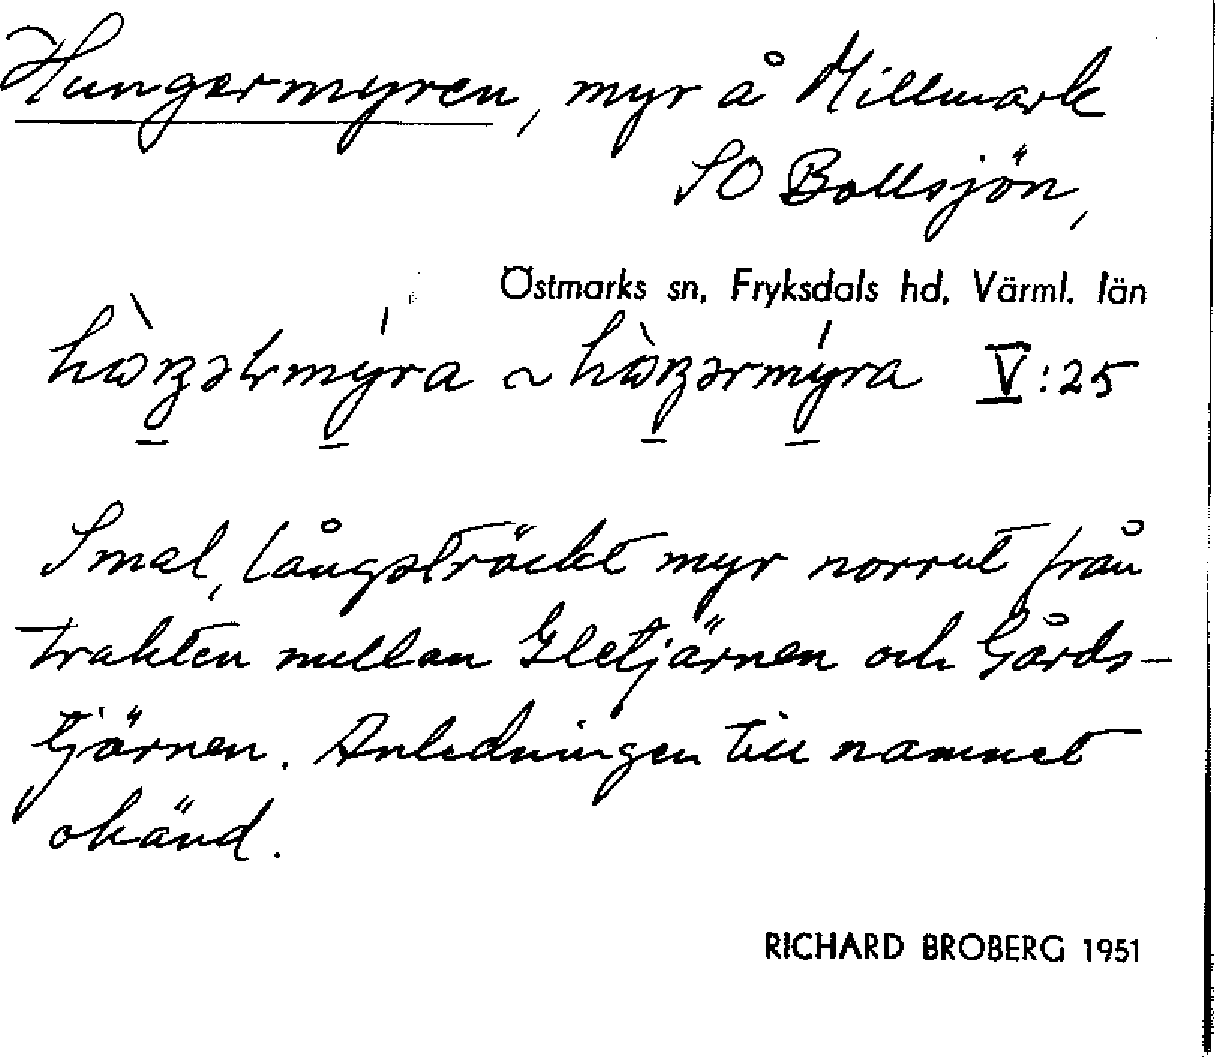 Hungermyren, myr å Millmark
SO Bollsjön,
Östmarks sn, Fryksdals hd, Värml. län
V:25
Smal, långsträckt myr norrut från
trakten mellan Gletjärnen och Gårds-
tjärnen. Anledningen till namnet
okänd.
RICHARD BROBERG 1951